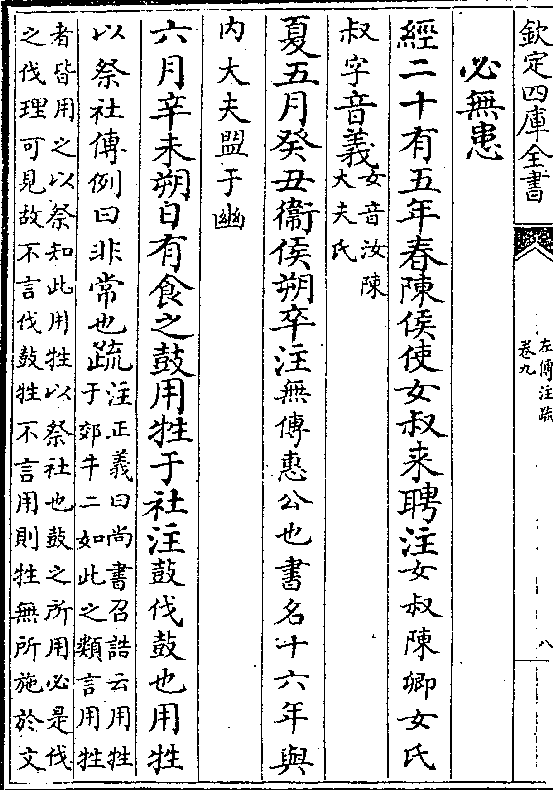 欽定四庫全書
左傳注疏
卷九
八
必無患
經二十有五年春陳侯使女叔来聘注女叔陳卿女氏
叔字音義女音汝陳
大夫氏
夏五月癸丑衞侯朔卒注無傳惠公也書名十六年與
内大夫盟于幽
六月辛未朔日有食之鼓用牲于社注鼓伐鼓也用牲
以祭社傳例曰非常也疏注正義曰尚書召誥云用牲
于郊牛二如此之類言用牲
者皆用之以祭知此用牲以祭社也鼓之所用必是伐
之伐理可見故不言伐鼓牲不言用則牲無所施於文